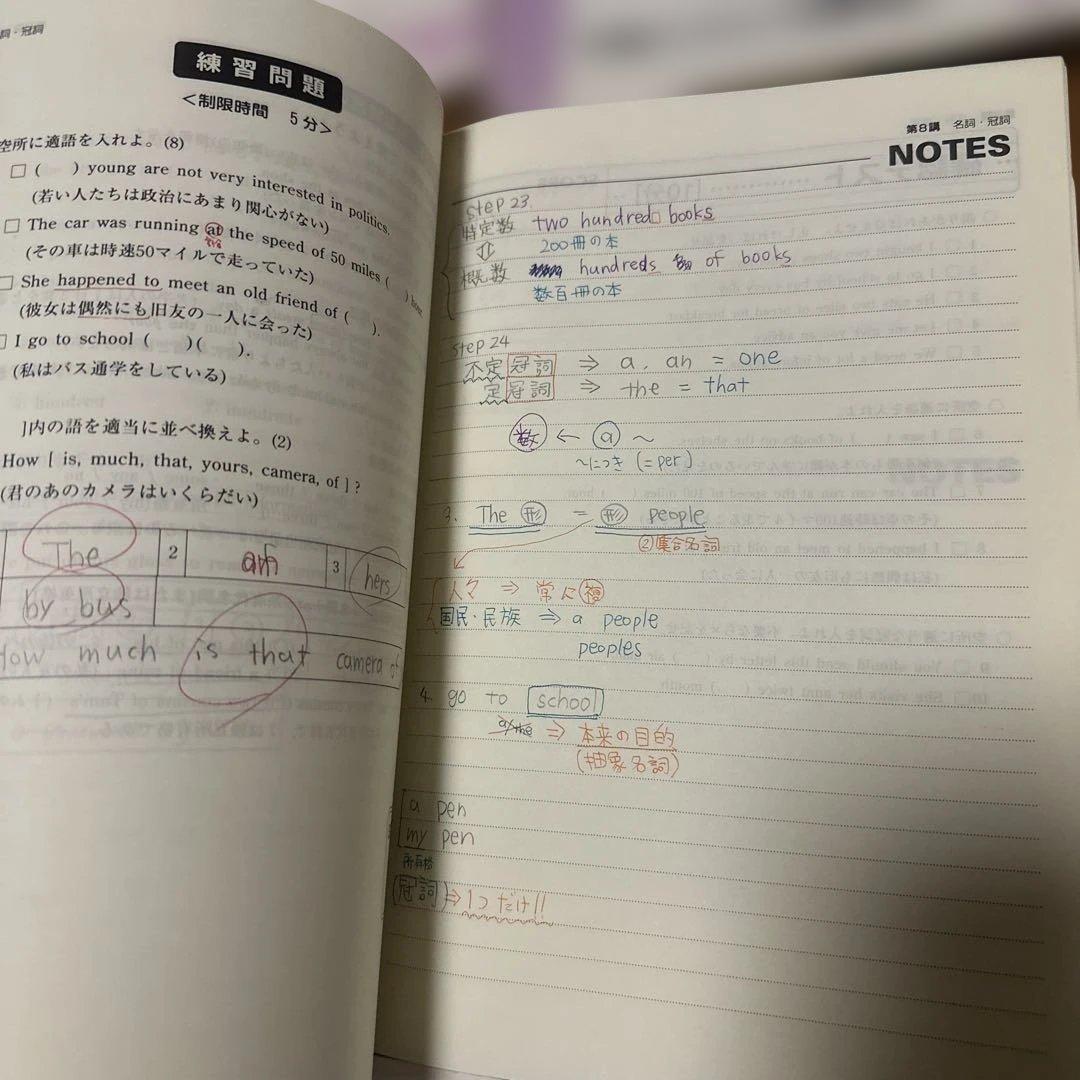 詞・冠詞
練習問題
＜制限時間 5分＞
空所に適語を入れよ。(8)
□ ( ) young are not very interested in politics.
(若い人たちは政治にあまり関心がない)
□ The car was running at the speed of 50 miles ( ) hour.
(その車は時速50マイルで走っていた)
□ She happened to meet an old friend of ( ).
(彼女は偶然にも旧友の一人に会った)
□ I go to school ( )( ).
(私はバス通学をしている)
]内の語を適当に並べ換えよ。(2)
How [ is, much, that, yours, camera, of ] ?
(君のあのカメラはいくらだい)
The 2 an 3 hers
by bus
How much is that camera of
第8講 名詞・冠詞
NOTES
step 23
特定数 two hundred books
200冊の本
概数 hundreds of books
数百冊の本
step 24
不定冠詞 ⇒ a, an = one
定冠詞 ⇒ the = that
数 ← a 〜
〜につき (=per)
3. The 形 = 形 people
②集合名詞
人々 ⇒ 常に複
国民・民族 ⇒ a people
peoples
4. go to school
a/the ⇒ 本来の目的
(抽象名詞)
a pen
my pen
所有格
(冠詞) ⇒ 1つだけ!!